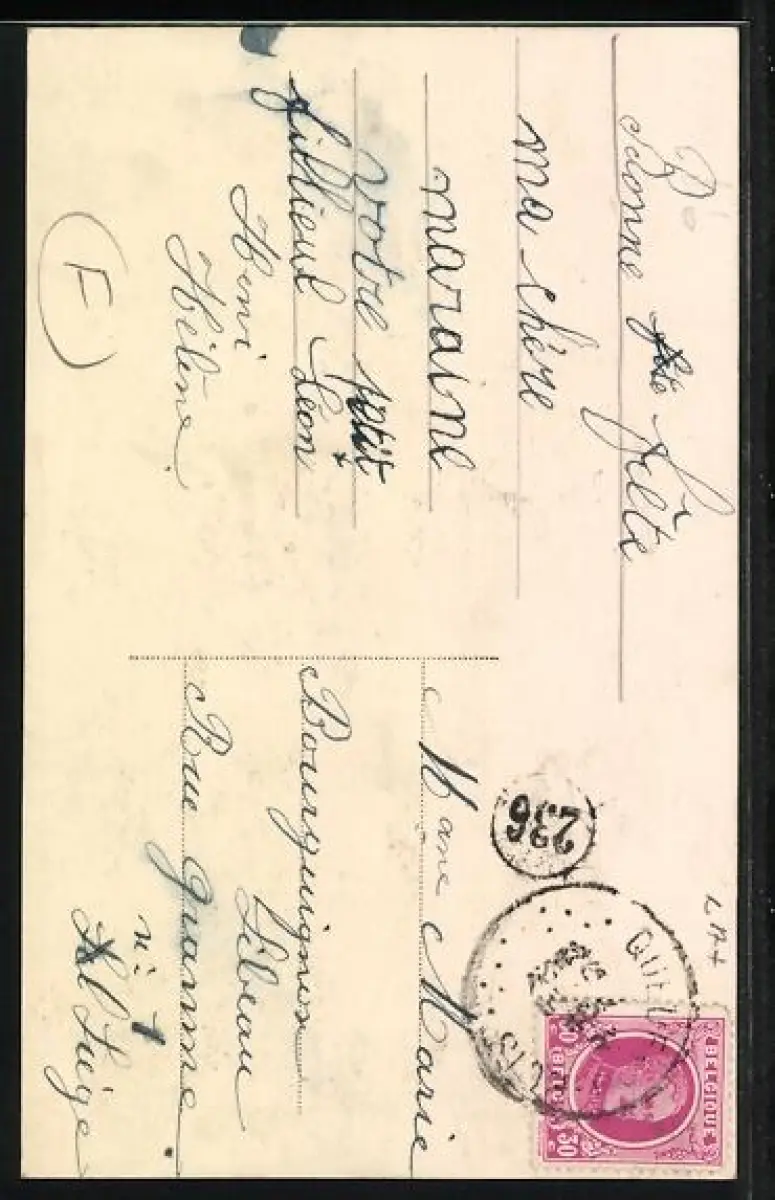 Bonne fête
ma chère
maraine
votre petit
fillieul Léon
Henri
Hélène
F
Mme Marie
Bourguignon
Libeau
Rue Gramme
n: 7
Liège
236
BELGIQUE
BELG
30